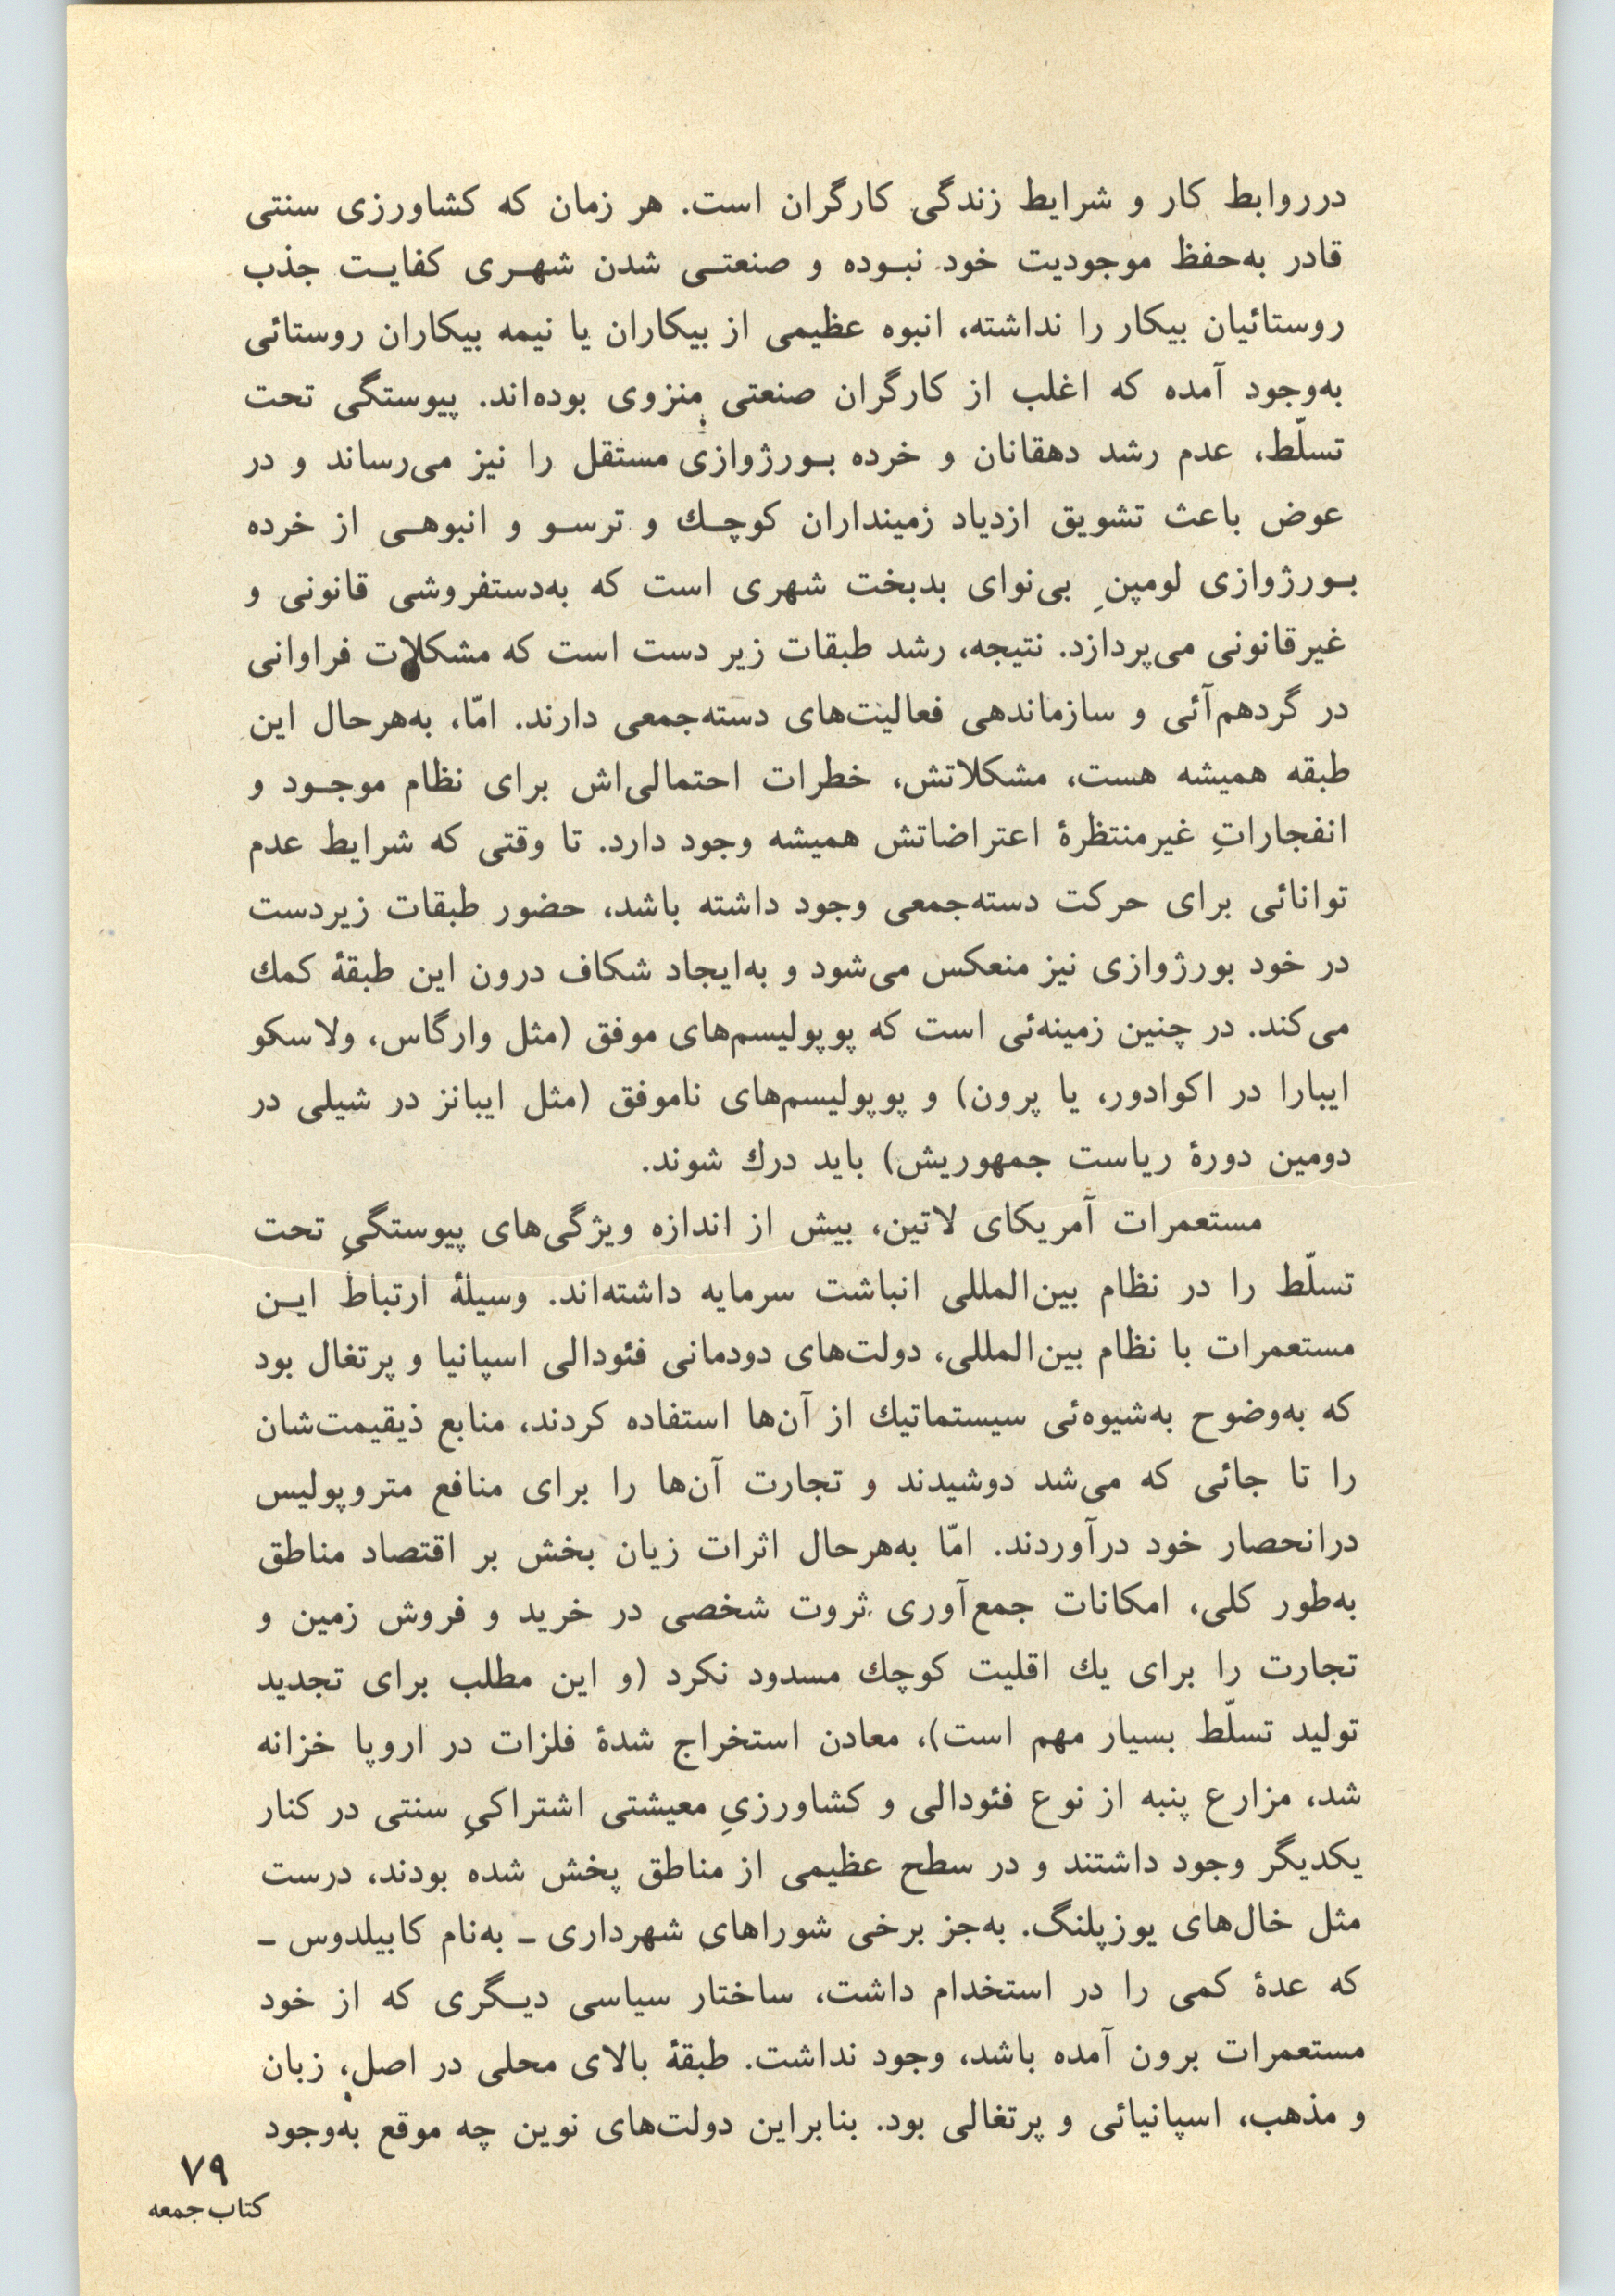 درروابط کار و شرایط زندگی کارگران است. هر زمان که کشاورزی سنتی
قادر به‌حفظ موجودیت خود نبوده و صنعتی شدن شهری کفایت جذب
روستائیان بیکار را نداشته، انبوه عظیمی از بیکاران یا نیمه بیکاران روستائی
به‌وجود آمده که اغلب از کارگران صنعتی منزوی بوده‌اند. پیوستگی تحت
تسلّط، عدم رشد دهقانان و خرده بورژوازی مستقل را نیز می‌رساند و در
عوض باعث تشویق ازدیاد زمینداران کوچك و ترسو و انبوهی از خرده
بورژوازی لومپنِ بی‌نوای بدبخت شهری است که به‌دستفروشی قانونی و
غیرقانونی می‌پردازد. نتیجه، رشد طبقات زیر دست است که مشکلات فراوانی
در گردهم‌آئی و سازماندهی فعالیت‌های دسته‌جمعی دارند. امّا، به‌هرحال این
طبقه همیشه هست، مشکلاتش، خطرات احتمالی‌اش برای نظام موجود و
انفجاراتِ غیرمنتظرۀ اعتراضاتش همیشه وجود دارد. تا وقتی که شرایط عدم
توانائی برای حرکت دسته‌جمعی وجود داشته باشد، حضور طبقات زیردست
در خود بورژوازی نیز منعکس می‌شود و به‌ایجاد شکاف درون این طبقۀ کمك
می‌کند. در چنین زمینه‌ئی است که پوپولیسم‌های موفق (مثل وارگاس، ولاسکو
ایبارا در اکوادور، یا پرون) و پوپولیسم‌های ناموفق (مثل ایبانز در شیلی در
دومین دورۀ ریاست جمهوریش) باید درك شوند.
مستعمرات آمریکای لاتین، بیش از اندازه ویژگی‌های پیوستگیِ تحت
تسلّط را در نظام بین‌المللی انباشت سرمایه داشته‌اند. وسیلۀ ارتباط این
مستعمرات با نظام بین‌المللی، دولت‌های دودمانی فئودالی اسپانیا و پرتغال بود
که به‌وضوح به‌شیوه‌ئی سیستماتیك از آن‌ها استفاده کردند، منابع ذیقیمت‌شان
را تا جائی که می‌شد دوشیدند و تجارت آن‌ها را برای منافع متروپولیس
درانحصار خود درآوردند. امّا به‌هرحال اثرات زیان بخش بر اقتصاد مناطق
به‌طور کلی، امکانات جمع‌آوری ثروت شخصی در خرید و فروش زمین و
تجارت را برای یك اقلیت کوچك مسدود نکرد (و این مطلب برای تجدید
تولید تسلّط بسیار مهم است)، معادن استخراج شدۀ فلزات در اروپا خزانه
شد، مزارع پنبه از نوع فئودالی و کشاورزیِ معیشتی اشتراکیِ سنتی در کنار
یکدیگر وجود داشتند و در سطح عظیمی از مناطق پخش شده بودند، درست
مثل خال‌های یوزپلنگ. به‌جز برخی شوراهای شهرداری ـ به‌نام کابیلدوس ـ
که عدۀ کمی را در استخدام داشت، ساختار سیاسی دیگری که از خود
مستعمرات برون آمده باشد، وجود نداشت. طبقۀ بالای محلی در اصل، زبان
و مذهب، اسپانیائی و پرتغالی بود. بنابراین دولت‌های نوین چه موقع به‌وجود
۷۹
کتاب جمعه